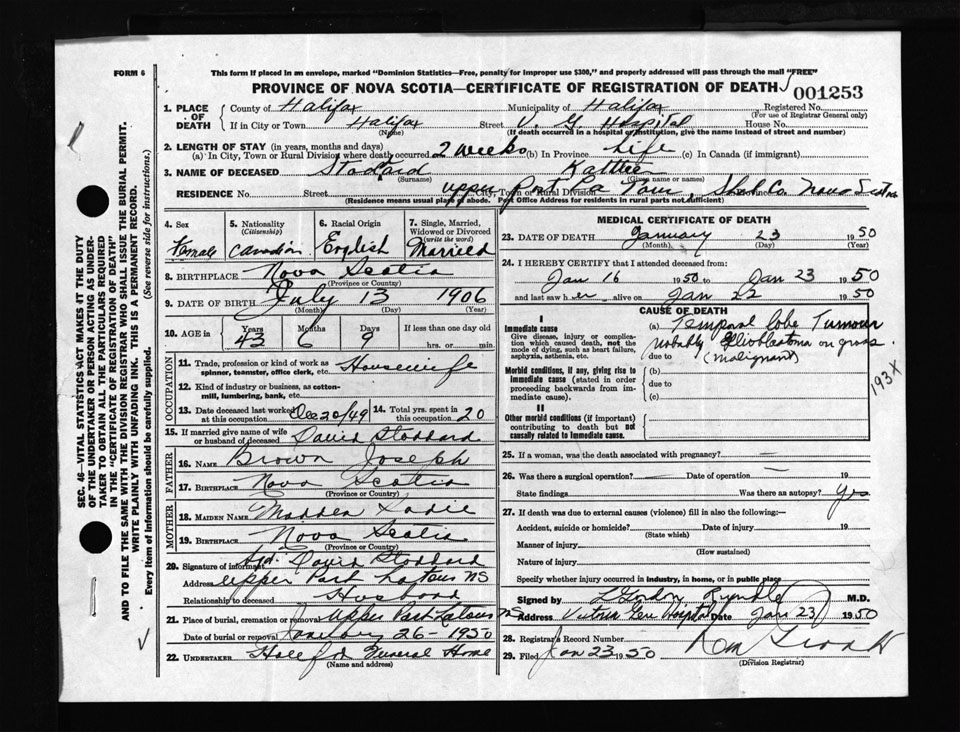 FORM 6
This form if placed in an envelope, marked "Dominion Statistics—Free, penalty for improper use $300," and properly addressed will pass through the mail "FREE"
PROVINCE OF NOVA SCOTIA—CERTIFICATE OF REGISTRATION OF DEATH
001253
1. PLACE OF DEATH
County of Halifax Municipality of Halifax Registered No.
(For use of Registrar General only)
If in City or Town Halifax Street V. G. Hospital House No.
(Name) (If death occurred in a hospital or institution, give the name instead of street and number)
2. LENGTH OF STAY (in years, months and days)
(a) In City, Town or Rural Division where death occurred 2 weeks (b) In Province Life (c) In Canada (if immigrant)
3. NAME OF DECEASED Stoddard
(Surname) (Given name or names)
RESIDENCE No. Street City, Town or Rural Division Upper Port La Tour, Shel. Co. Nova Scotia
(Residence means usual place of abode. Post Office Address for residents in rural parts not sufficient)
4. Sex Female
5. Nationality (Citizenship) Canadian
6. Racial Origin English
7. Single, Married, Widowed or Divorced (write the word) Married
8. BIRTHPLACE Nova Scotia
(Province or Country)
9. DATE OF BIRTH July 13 1906
(Month) (Day) (Year)
10. AGE in Years 43 Months 6 Days 9 If less than one day hrs. or min.
OCCUPATION
11. Trade, profession or kind of work as spinner, teamster, office clerk, etc. Housewife
12. Kind of industry or business, as cotton-mill, lumbering, bank, etc.
13. Date deceased last worked at this occupation Dec 20/49
14. Total yrs. spent in this occupation 20
15. If married give name of wife or husband of deceased David Stoddard
FATHER
16. NAME Brown Joseph
17. BIRTHPLACE Nova Scotia
(Province or Country)
MOTHER
18. MAIDEN NAME Madden Sadie
19. BIRTHPLACE Nova Scotia
(Province or Country)
20. Signature of informant Sgd. David Stoddard
Address Upper Port Latour NS
Relationship to deceased Husband
21. Place of burial, cremation or removal Upper Port Latour NS
Date of burial or removal January 26-1950
22. UNDERTAKER Funeral Home
(Name and address)
MEDICAL CERTIFICATE OF DEATH
23. DATE OF DEATH January 23 1950
(Month) (Day) (Year)
24. I HEREBY CERTIFY that I attended deceased from:
Jan 16 1950 to Jan 23 1950
and last saw her alive on Jan 22 1950
CAUSE OF DEATH
I
Immediate cause
Give disease, injury, or complication which caused death, not the mode of dying, such as heart failure, asphyxia, asthenia, etc.
(a) Temporal lobe Tumour
probably Glioblastoma on gross.
due to (malignant)
Morbid conditions, if any, giving rise to immediate cause (stated in order proceeding backwards from immediate cause).
(b)
due to
(c)
193X
II
Other morbid conditions (if important) contributing to death but not causally related to immediate cause.
25. If a woman, was the death associated with pregnancy? —
26. Was there a surgical operation? — Date of operation — 19
State findings Was there an autopsy? Yes
27. If death was due to external causes (violence) fill in also the following:—
Accident, suicide or homicide? Date of injury 19
(State which)
Manner of injury
(How sustained)
Nature of injury
Specify whether injury occurred in industry, in home, or in public place
Signed by Gordon M.D.
Address Victoria Gen Hospital Date Jan 23 1950
28. Registrar's Record Number
29. Filed Jan 23 1950
(Division Registrar)
SEC. 46—VITAL STATISTICS ACT MAKES IT THE DUTY
OF THE UNDERTAKER OR PERSON ACTING AS UNDER-
TAKER TO OBTAIN ALL THE PARTICULARS REQUIRED
IN THE "CERTIFICATE OF REGISTRATION OF DEATH"
AND TO FILE THE SAME WITH THE DIVISION REGISTRAR WHO SHALL ISSUE THE BURIAL PERMIT.
WRITE PLAINLY WITH UNFADING INK. THIS IS A PERMANENT RECORD.
Every item of information should be carefully supplied. (See reverse side for instructions.)